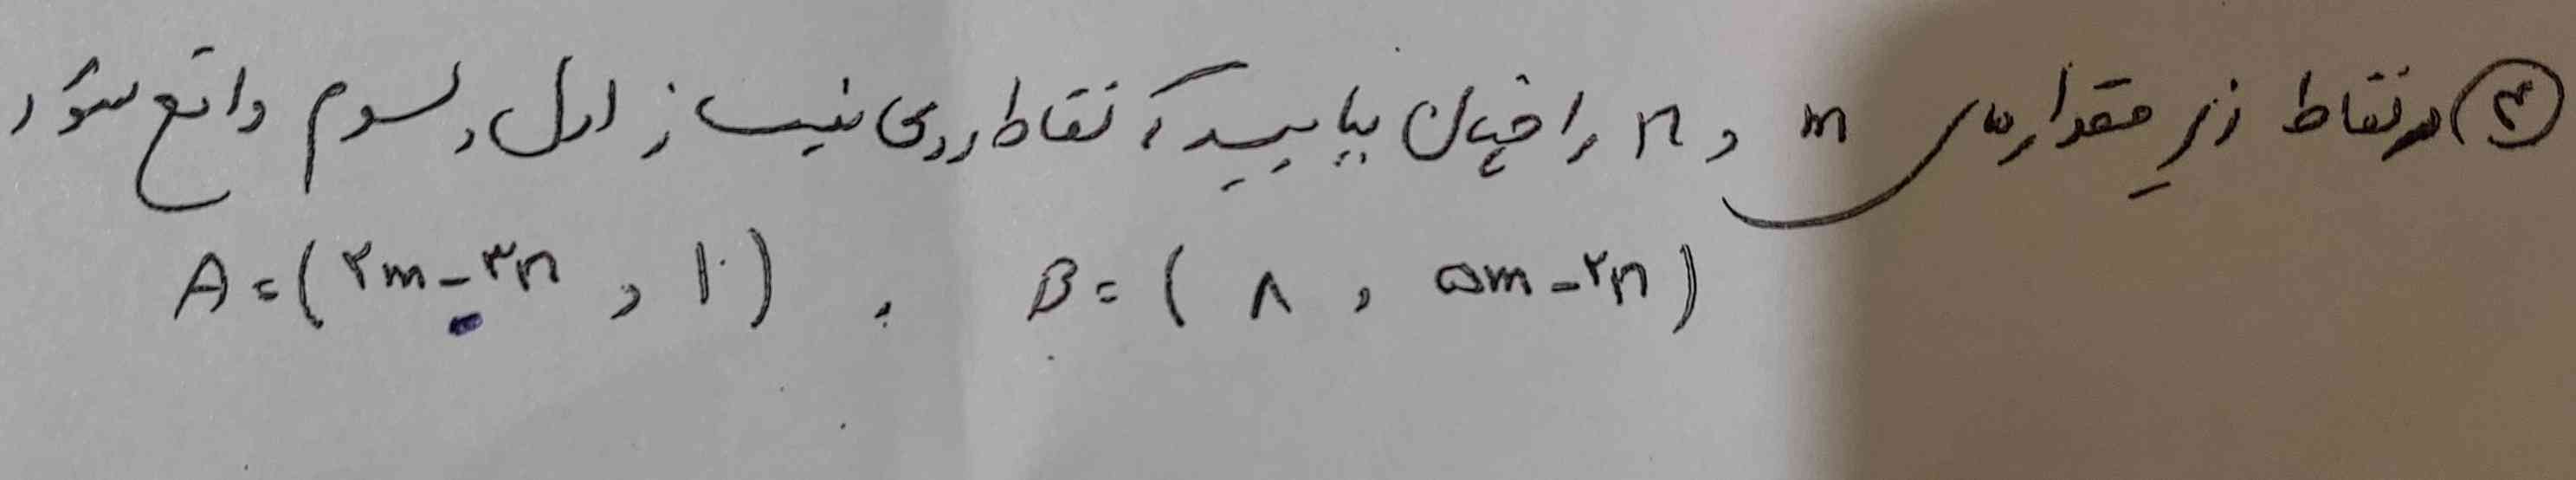 ۳ در نقاط زیر مقدارهای m و n را چنان بیابید که نقاط روی نیمساز اول و سوم واقع شود
A = (۲m - ۳n , ۱۰) , B = ( ۸ , ۵m - ۲n )